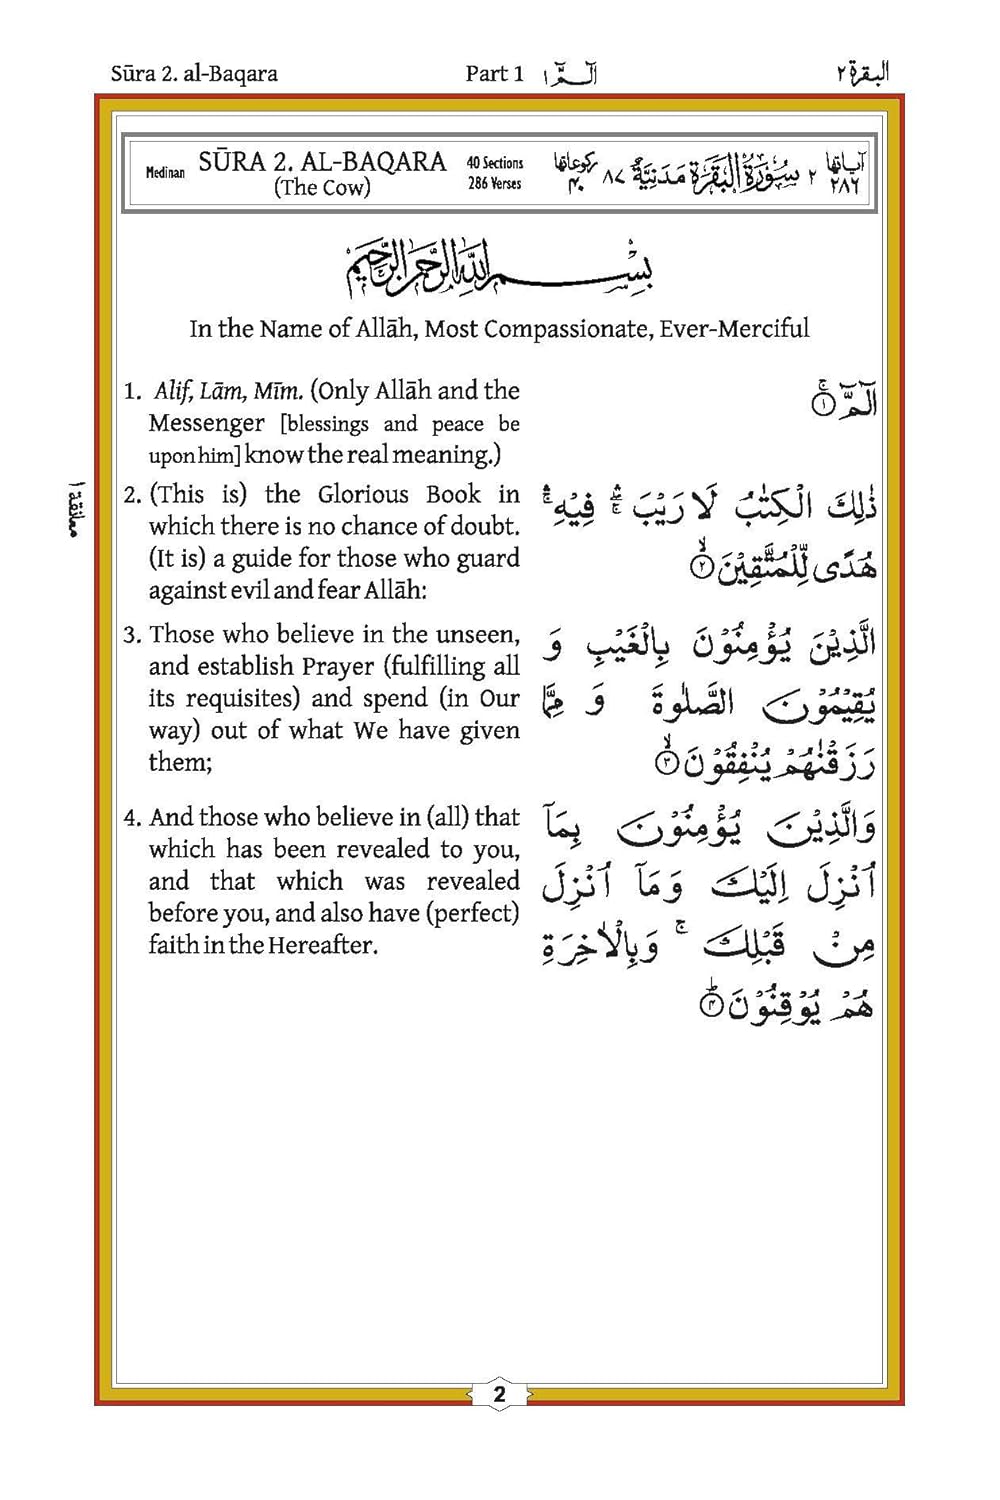 Sūra 2. al-Baqara
Part 1
الٓـمّٓ ١
البقرة ٢
Medinan
SŪRA 2. AL-BAQARA
(The Cow)
40 Sections
286 Verses
رکوعاتها
۴۰
۸۷
سُوْرَةُ الْبَقَرَةِ مَدَنِيَّةٌ
۲
آیاتها
۲۸۶
بِسْمِ اللّٰهِ الرَّحْمٰنِ الرَّحِيْمِ
In the Name of Allāh, Most Compassionate, Ever-Merciful
1. Alif, Lām, Mīm. (Only Allāh and the
Messenger [blessings and peace be
upon him] know the real meaning.)
الٓمّٓ ۚ ﴿۱﴾
معانقة ١
2. (This is) the Glorious Book in
which there is no chance of doubt.
(It is) a guide for those who guard
against evil and fear Allāh:
ذٰلِكَ الْكِتٰبُ لَا رَيْبَ ۛ فِيْهِ ۛ
هُدًى لِّلْمُتَّقِيْنَ ۙ ﴿۲﴾
3. Those who believe in the unseen,
and establish Prayer (fulfilling all
its requisites) and spend (in Our
way) out of what We have given
them;
الَّذِيْنَ يُؤْمِنُوْنَ بِالْغَيْبِ وَ
يُقِيْمُوْنَ الصَّلٰوةَ وَ مِمَّا
رَزَقْنٰهُمْ يُنْفِقُوْنَ ۙ ﴿۳﴾
4. And those who believe in (all) that
which has been revealed to you,
and that which was revealed
before you, and also have (perfect)
faith in the Hereafter.
وَالَّذِيْنَ يُؤْمِنُوْنَ بِمَآ
اُنْزِلَ اِلَيْكَ وَمَآ اُنْزِلَ
مِنْ قَبْلِكَ ۚ وَبِالْاٰخِرَةِ
هُمْ يُوْقِنُوْنَ ؕ ﴿۴﴾
2